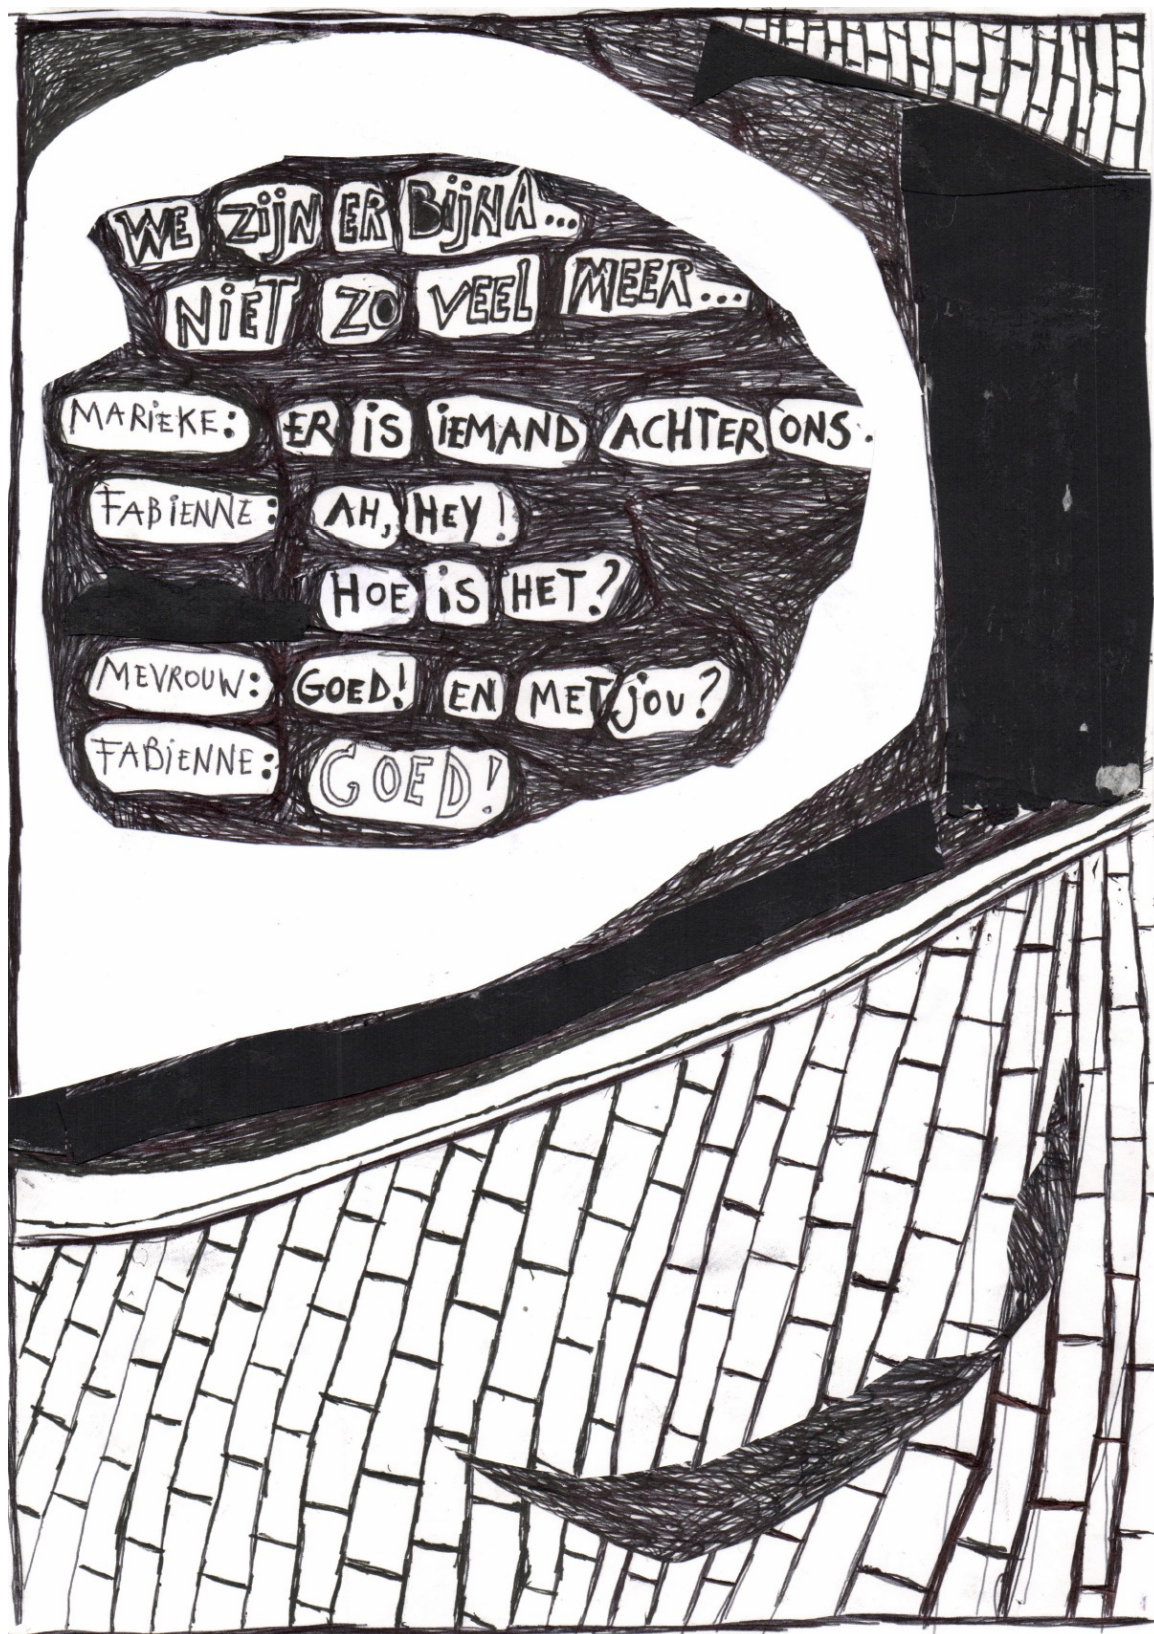 WE ZijN ER BijNA...
NiET ZO VEEL MEER...
MARiEKE: ER iS iEMAND ACHTER ONS.
FABiENNE: AH, HEY!
HOE iS HET?
MEVROUW: GOED! EN MET jOU?
FABiENNE: GOED!